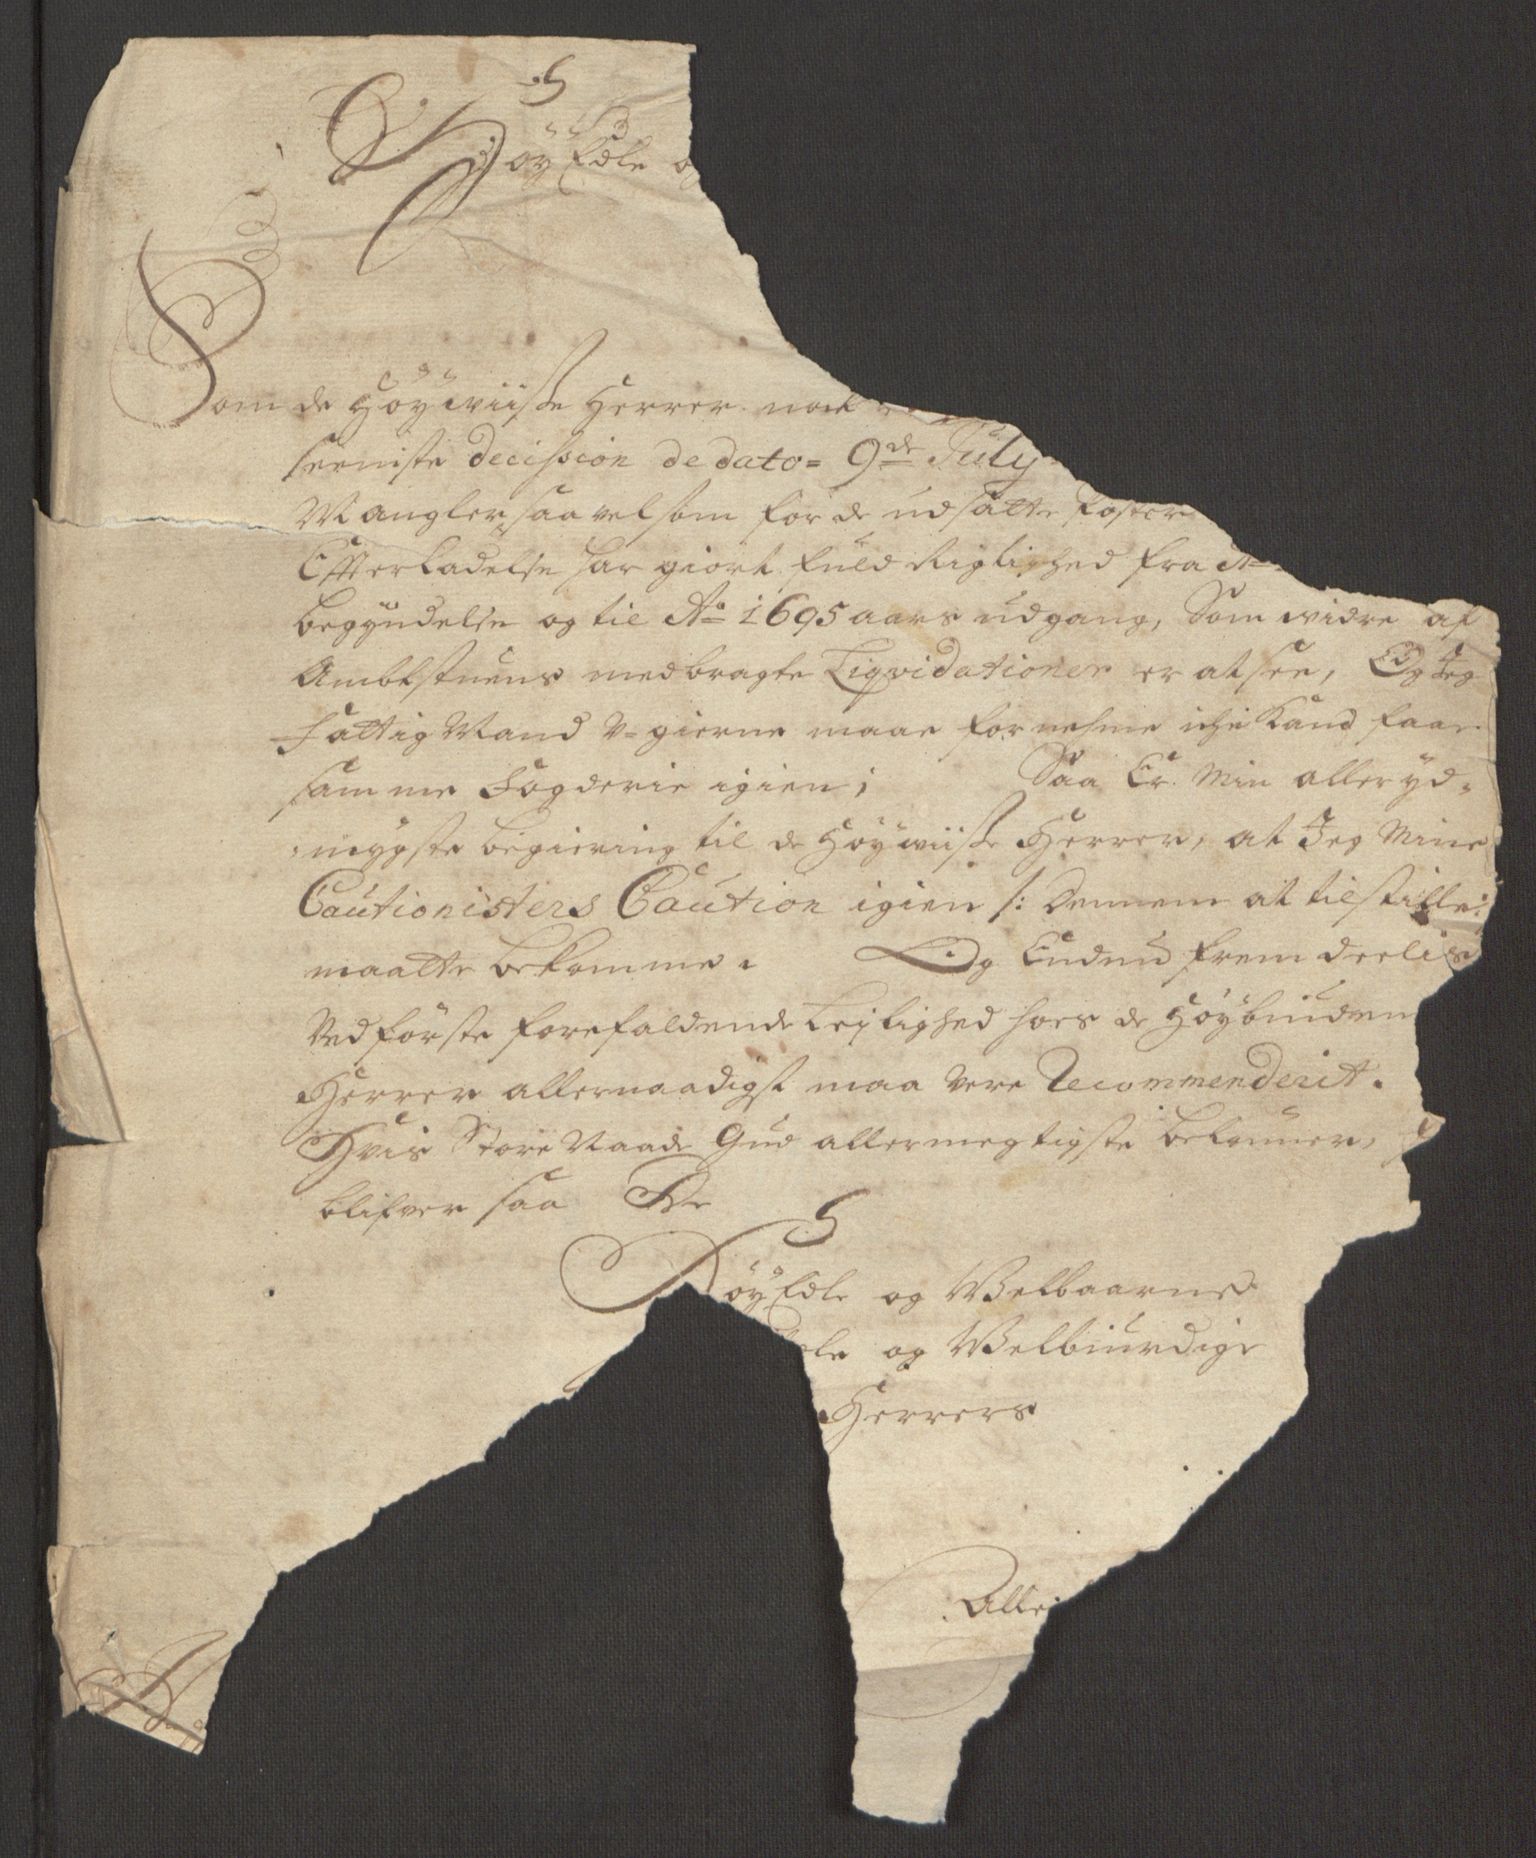 Høy Edle og
Som de Høy wiisse Herrer nock
seeniste decission de dato= 9de July
Mangler, saavelsom for de udsatte Poster
Efterladelse har giort fuld Rigtighed fra Ao
begyndelse og til Ao 1695 aars udgang, Som widre af
Ambtstuens medbragte Liqvidationer er at see, Og Jeg
Fattig Mand V=gierne maae fornehme iche kand faae
samme Fogderie igien; Saa Er Min alleryd=
=mygste begiering til de Høy wiisse Herrer, at Jeg Mine
Cautionisters Caution igien /: Dennem at tilstille :
maatte bekomme. Og Endnu fremdeelis
Ved første forefaldende Leylighed hoes de Høybiudene
Herrer allernaadigst maa vere Recommenderit.
Hvis Store Naade Gud allermegtigste belønner,
blifver saa De
Høy Edle og Welbaarne
Edle og Welbiurdige
Herrers
Aller